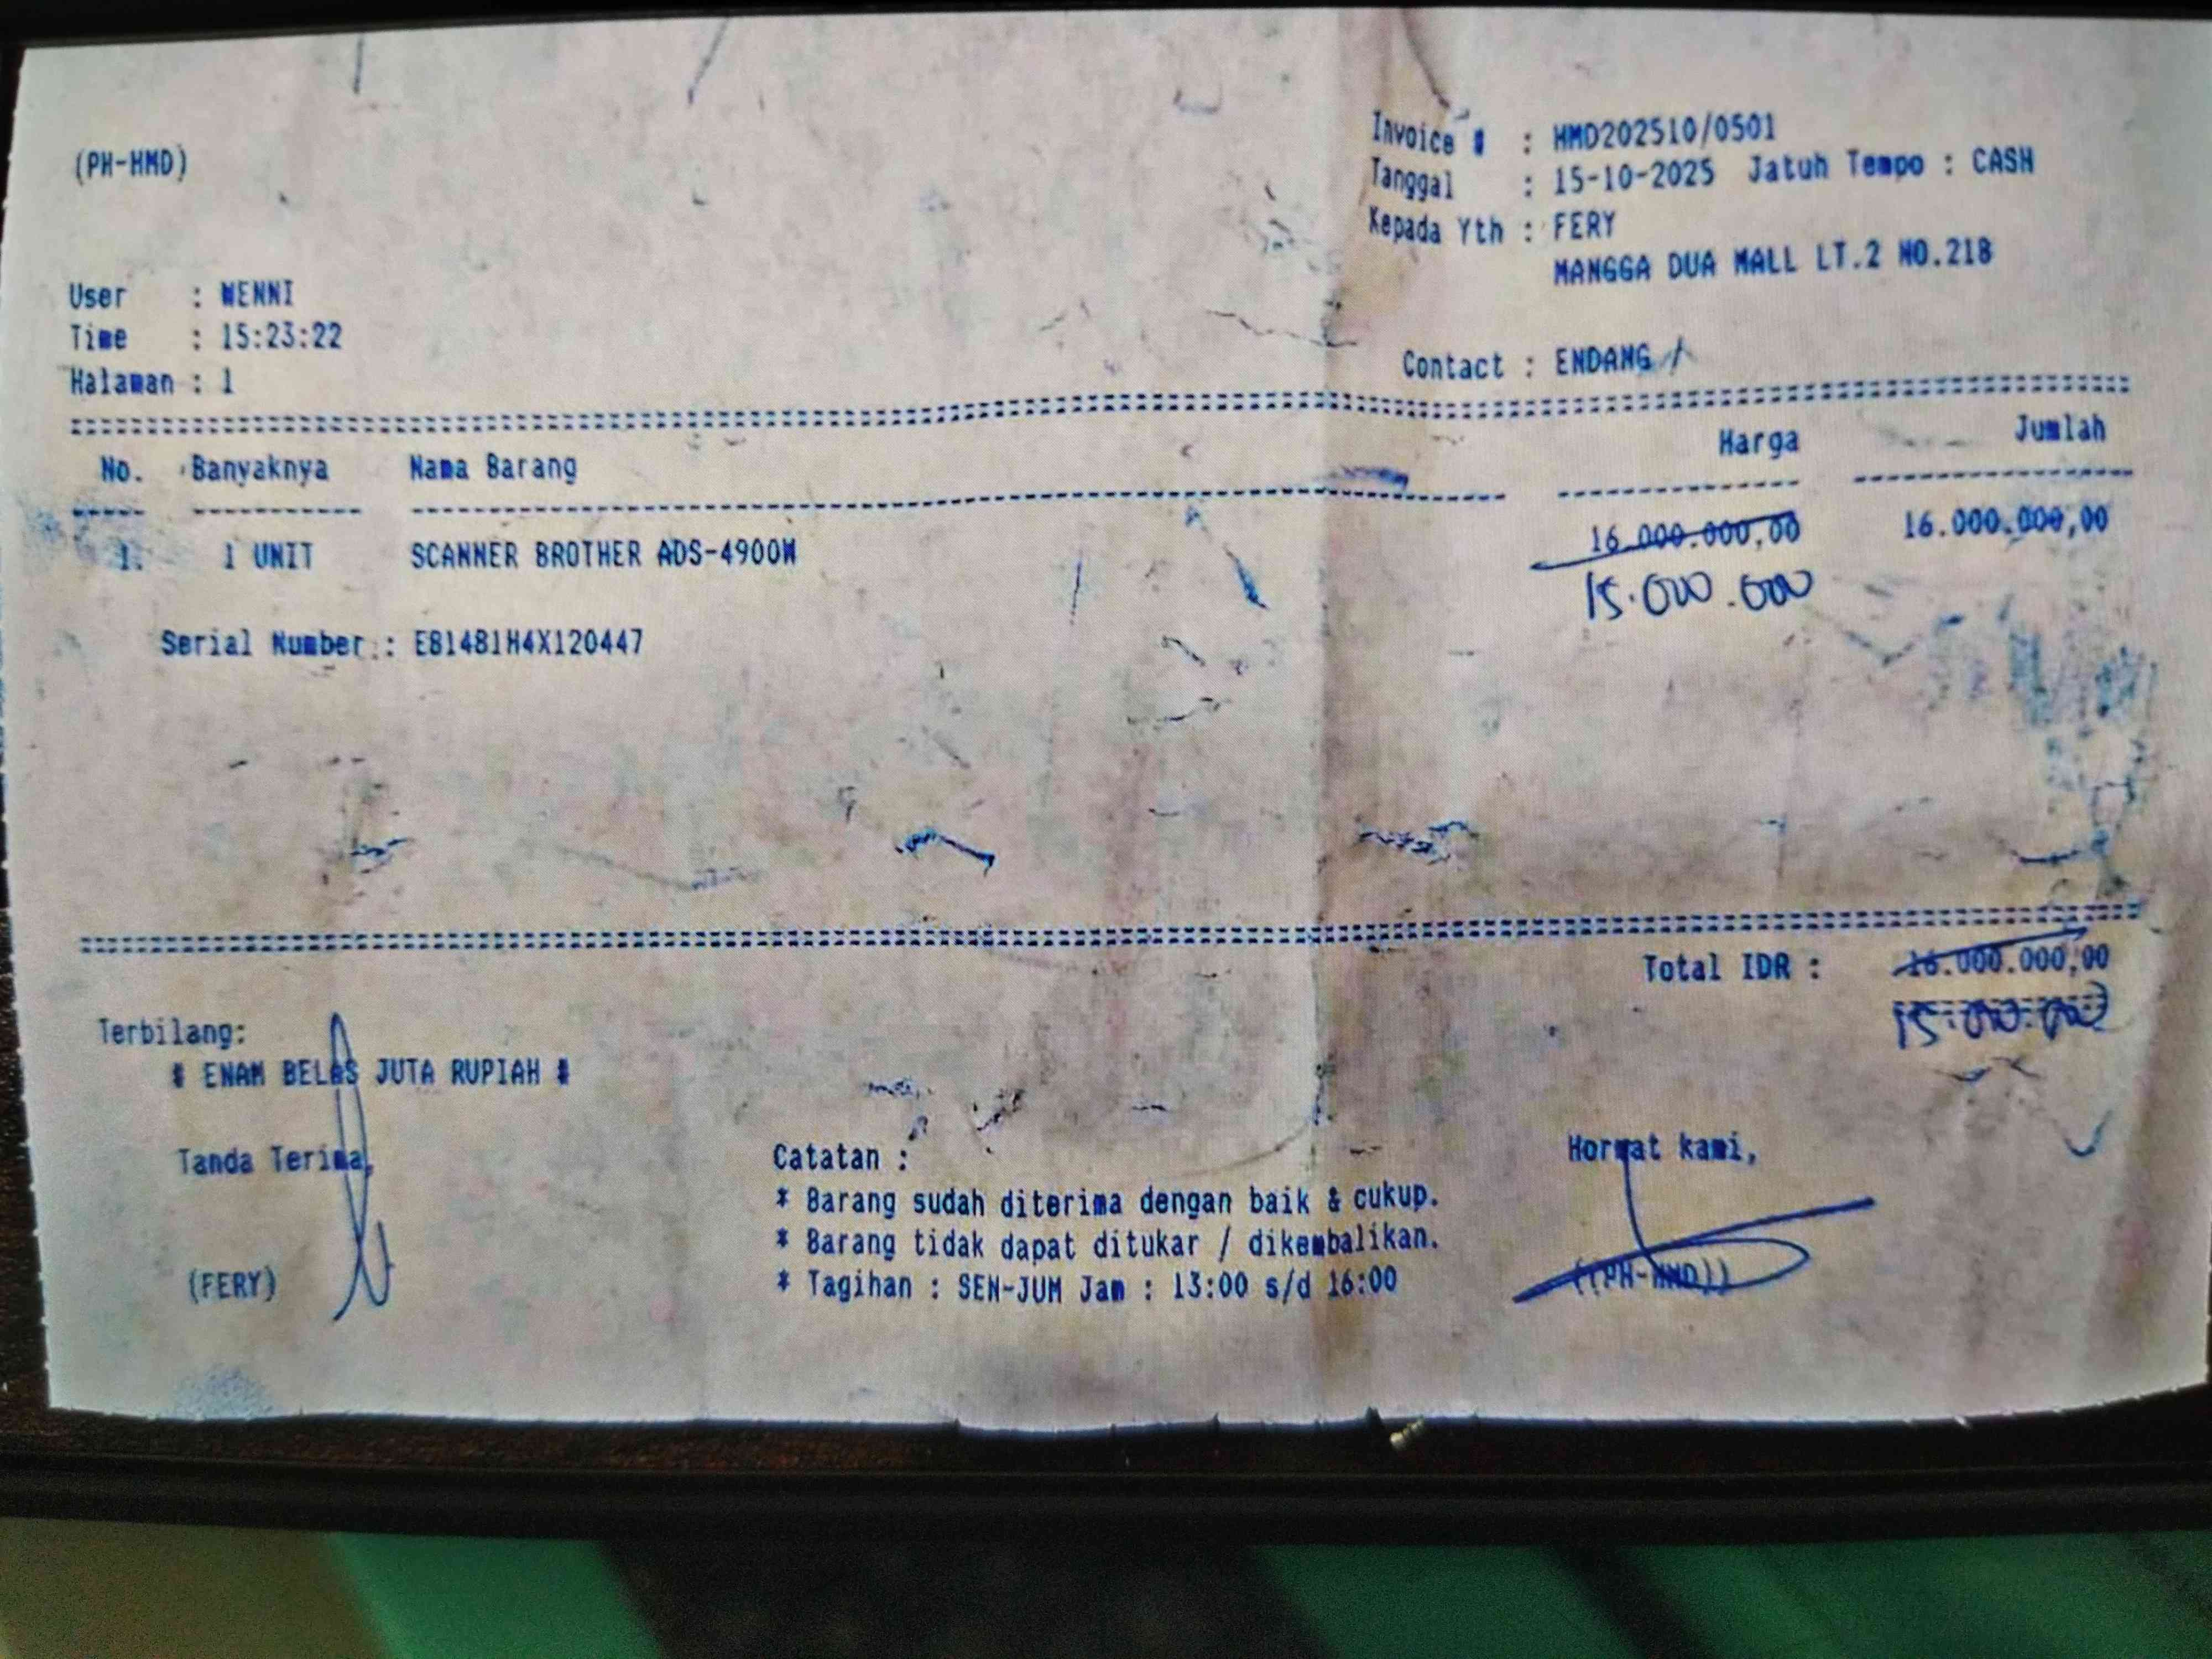 Invoice # : HMD202510/0501
(PH-HMD)
Tanggal : 15-10-2025 Jatuh Tempo : CASH
Kepada Yth : FERY
MANGGA DUA MALL LT.2 NO.218
User : WENNI
Time : 15:23:22
Contact : ENDANG /
Halaman : 1
No. Banyaknya Nama Barang Harga Jumlah
1. 1 UNIT SCANNER BROTHER ADS-4900W 16.000.000,00 16.000.000,00
15.000.000
Serial Number : E81481H4X120447
Total IDR : 16.000.000,00
15.000.000
Terbilang:
# ENAM BELAS JUTA RUPIAH #
Tanda Terima,
Catatan :
Hormat kami,
* Barang sudah diterima dengan baik & cukup.
* Barang tidak dapat ditukar / dikembalikan.
* Tagihan : SEN-JUM Jam : 13:00 s/d 16:00
(FERY)
((PH-HMD))